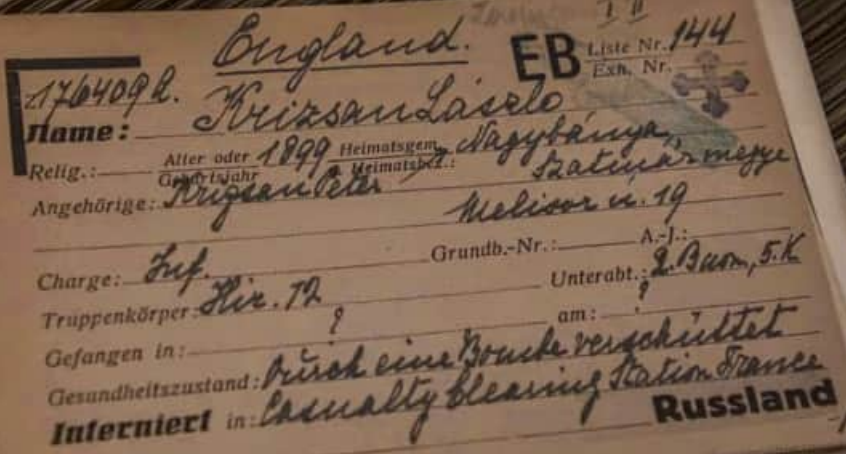 England.
I II
EB Liste Nr. 144
Exh. Nr.
176409 R.
Name: Krizsan László
Relig.: Alter oder Geburtsjahr 1899 Heimatsgem. Heimatsbez.: Nagybánya,
Szatmármegye
Angehörige: Krizsan Péter
u. 19
Charge: Inf. Grundb.-Nr.: A.-J.:
Truppenkörper: Hir. 12 Unterabt.: 2. Baon, 5. K
Gefangen in: ? am: ?
Gesundheitszustand: Durch eine Bombe verschüttet
Interniert in: Casualty Clearing Station France
Russland